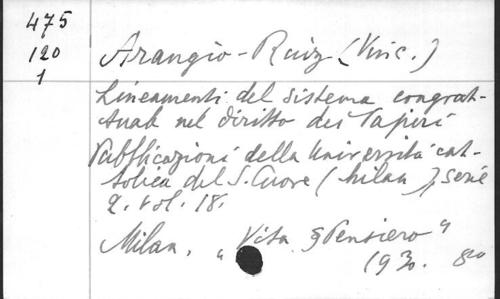 475
120
1
Arangio-Ruiz (Vinc.)
Lineamenti del sistema congrat-
tuale nel diritto dei Papiri
Pubblicazioni della Università cat-
tolica del S. Cuore (Milan), serie
2. vol. 18.
Milan. "Vita & Pensiero"
1930. 8°